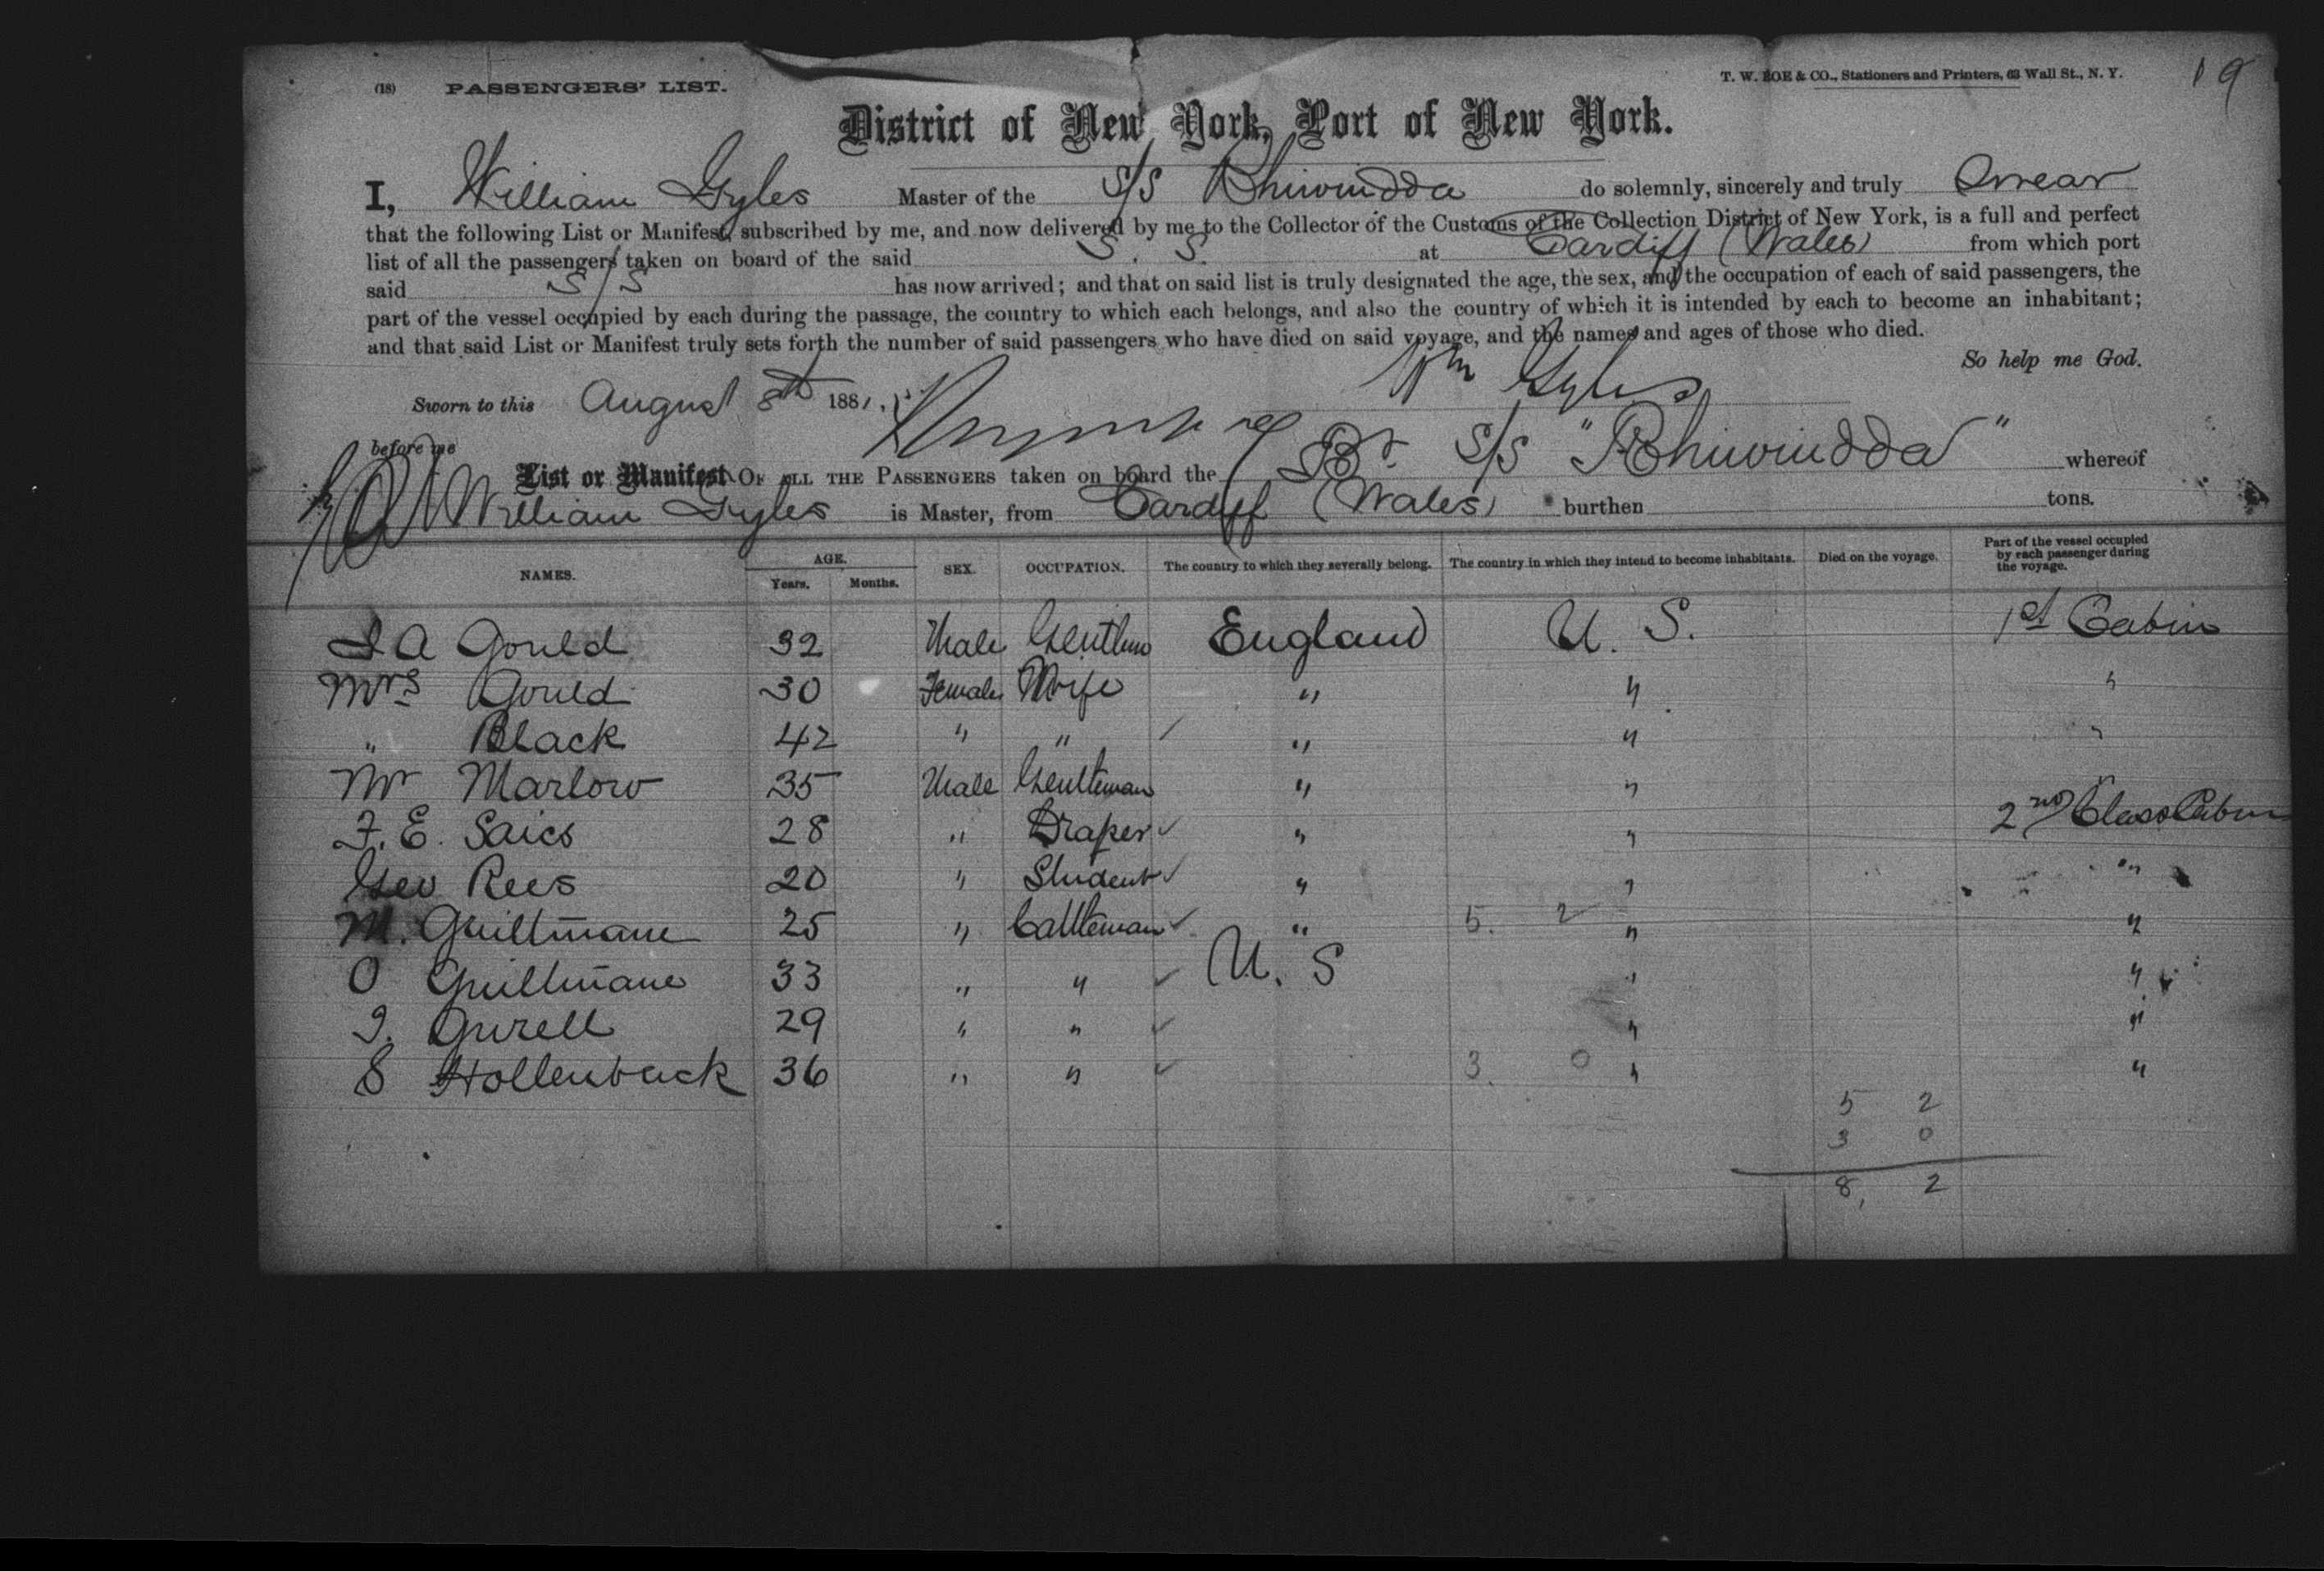 (18) PASSENGERS' LIST. T. W. BOE & CO., Stationers and Printers, 63 Wall St., N. Y. 19
District of New York, Port of New York.
I, William Gyles Master of the S/S Rhiwindda do solemnly, sincerely and truly Swear
that the following List or Manifest, subscribed by me, and now delivered by me to the Collector of the Customs of the Collection District of New York, is a full and perfect
list of all the passengers taken on board of the said S. S. at Cardiff (Wales) from which port
said S/S has now arrived; and that on said list is truly designated the age, the sex, and the occupation of each of said passengers, the
part of the vessel occupied by each during the passage, the country to which each belongs, and also the country of which it is intended by each to become an inhabitant;
and that said List or Manifest truly sets forth the number of said passengers who have died on said voyage, and the names and ages of those who died.
So help me God.
Wm Gyles
Sworn to this August 8th 1881.
before me
List or Manifest OF ALL THE PASSENGERS taken on board the Br. S/S "Rhiwindda" whereof
William Gyles is Master, from Cardiff (Wales) burthen tons.
NAMES. AGE. Years. Months. SEX. OCCUPATION. The country to which they severally belong. The country in which they intend to become inhabitants. Died on the voyage. Part of the vessel occupied by each passenger during the voyage.
A Gould 32 Male Gentlem England U. S. 1st Cabin
Mrs Gould 30 Female Wife " " "
" Black 42 " " " " "
Mr Marlow 35 Male Gentleman " " "
F. E. Saics 28 " Draper " " 2nd Class Cabin
Geo Rees 20 " Student " " "
M. Guillmane 25 " Cattleman " 5. 2 " "
O Guillmane 33 " " U. S " "
Gurell 29 " " " "
S Hollenback 36 " " 3. 0 " "
5 2
3 0
8, 2